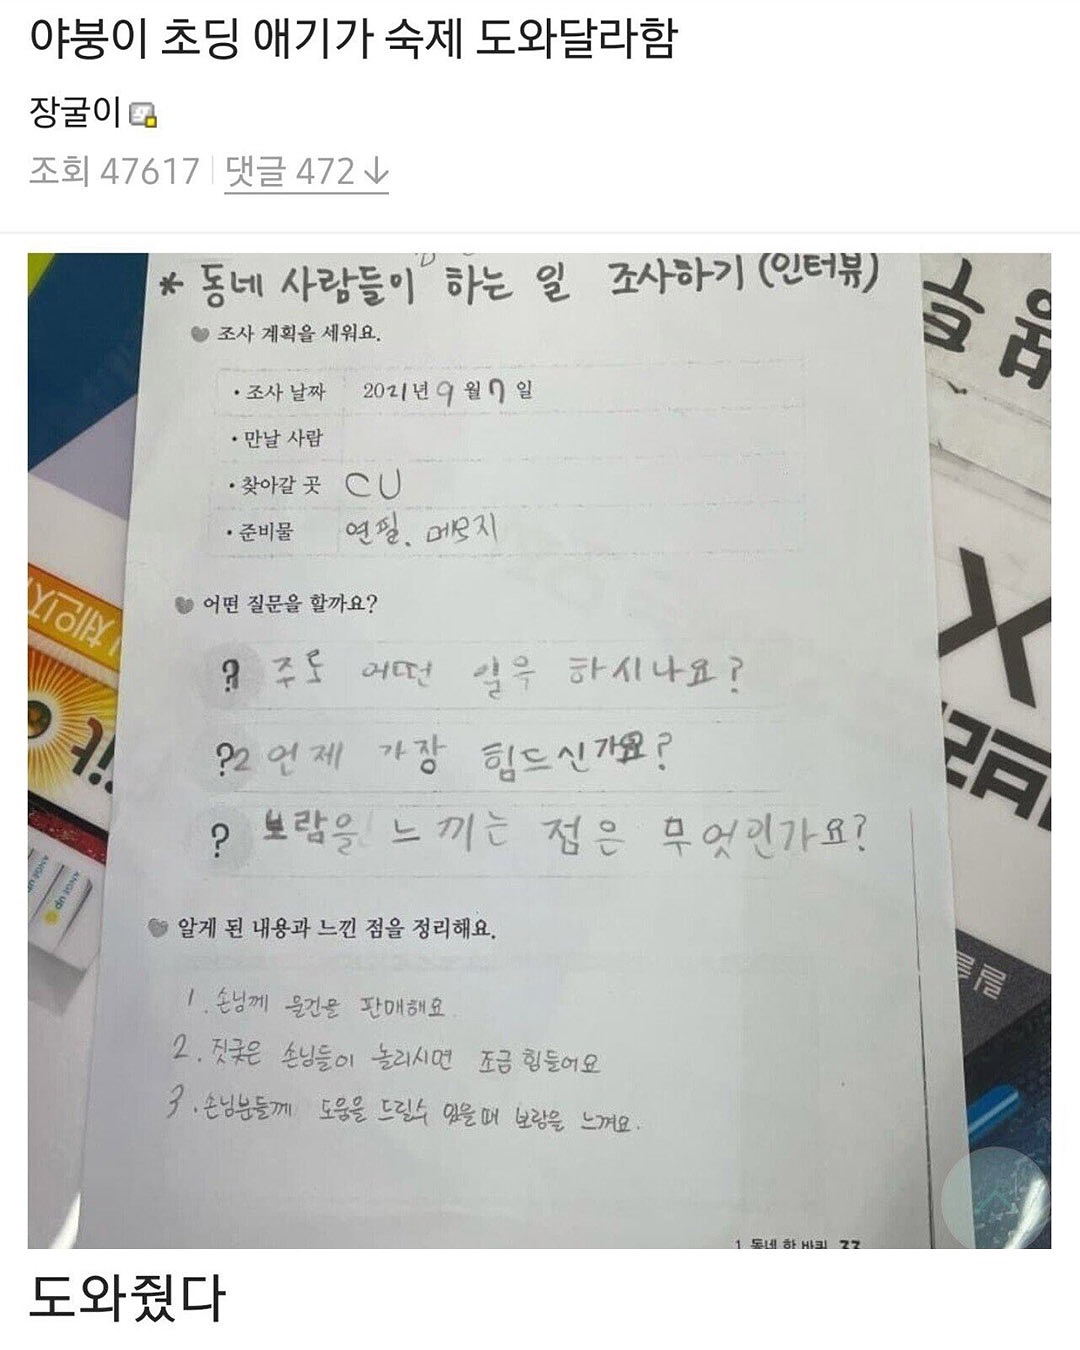 야붕이 초딩 애기가 숙제 도와달라함
장굴이
조회 47617 댓글 472↓
* 동네 사람들이 하는 일 조사하기 (인터뷰)
조사 계획을 세워요.
• 조사 날짜 2021년 9월 7일
• 만날 사람
• 찾아갈 곳 CU
• 준비물 연필, 메모지
어떤 질문을 할까요?
? 주로 어떤 일을 하시나요?
?2 언제 가장 힘드신가요?
? 보람을 느끼는 점은 무엇인가요?
알게 된 내용과 느낀 점을 정리해요.
1. 손님께 물건을 판매해요
2. 짓궂은 손님들이 놀리시면 조금 힘들어요
3. 손님분들께 도움을 드릴수 있을때 보람을 느껴요.
1 동네 한 바퀴 33
도와줬다